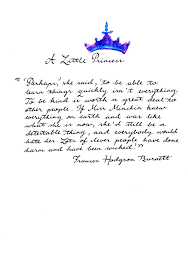 A Little Princess
"'Perhaps,' she said, 'to be able to
learn things quickly isn't everything.
To be kind is worth a great deal to
other people. If Miss Minchin knew
everything on earth and was like
what she is now, she'd still be a
detestable thing, and everybody would
hate her. Lots of clever people have done
harm and have been wicked.'"
Frances Hodgson Burnett